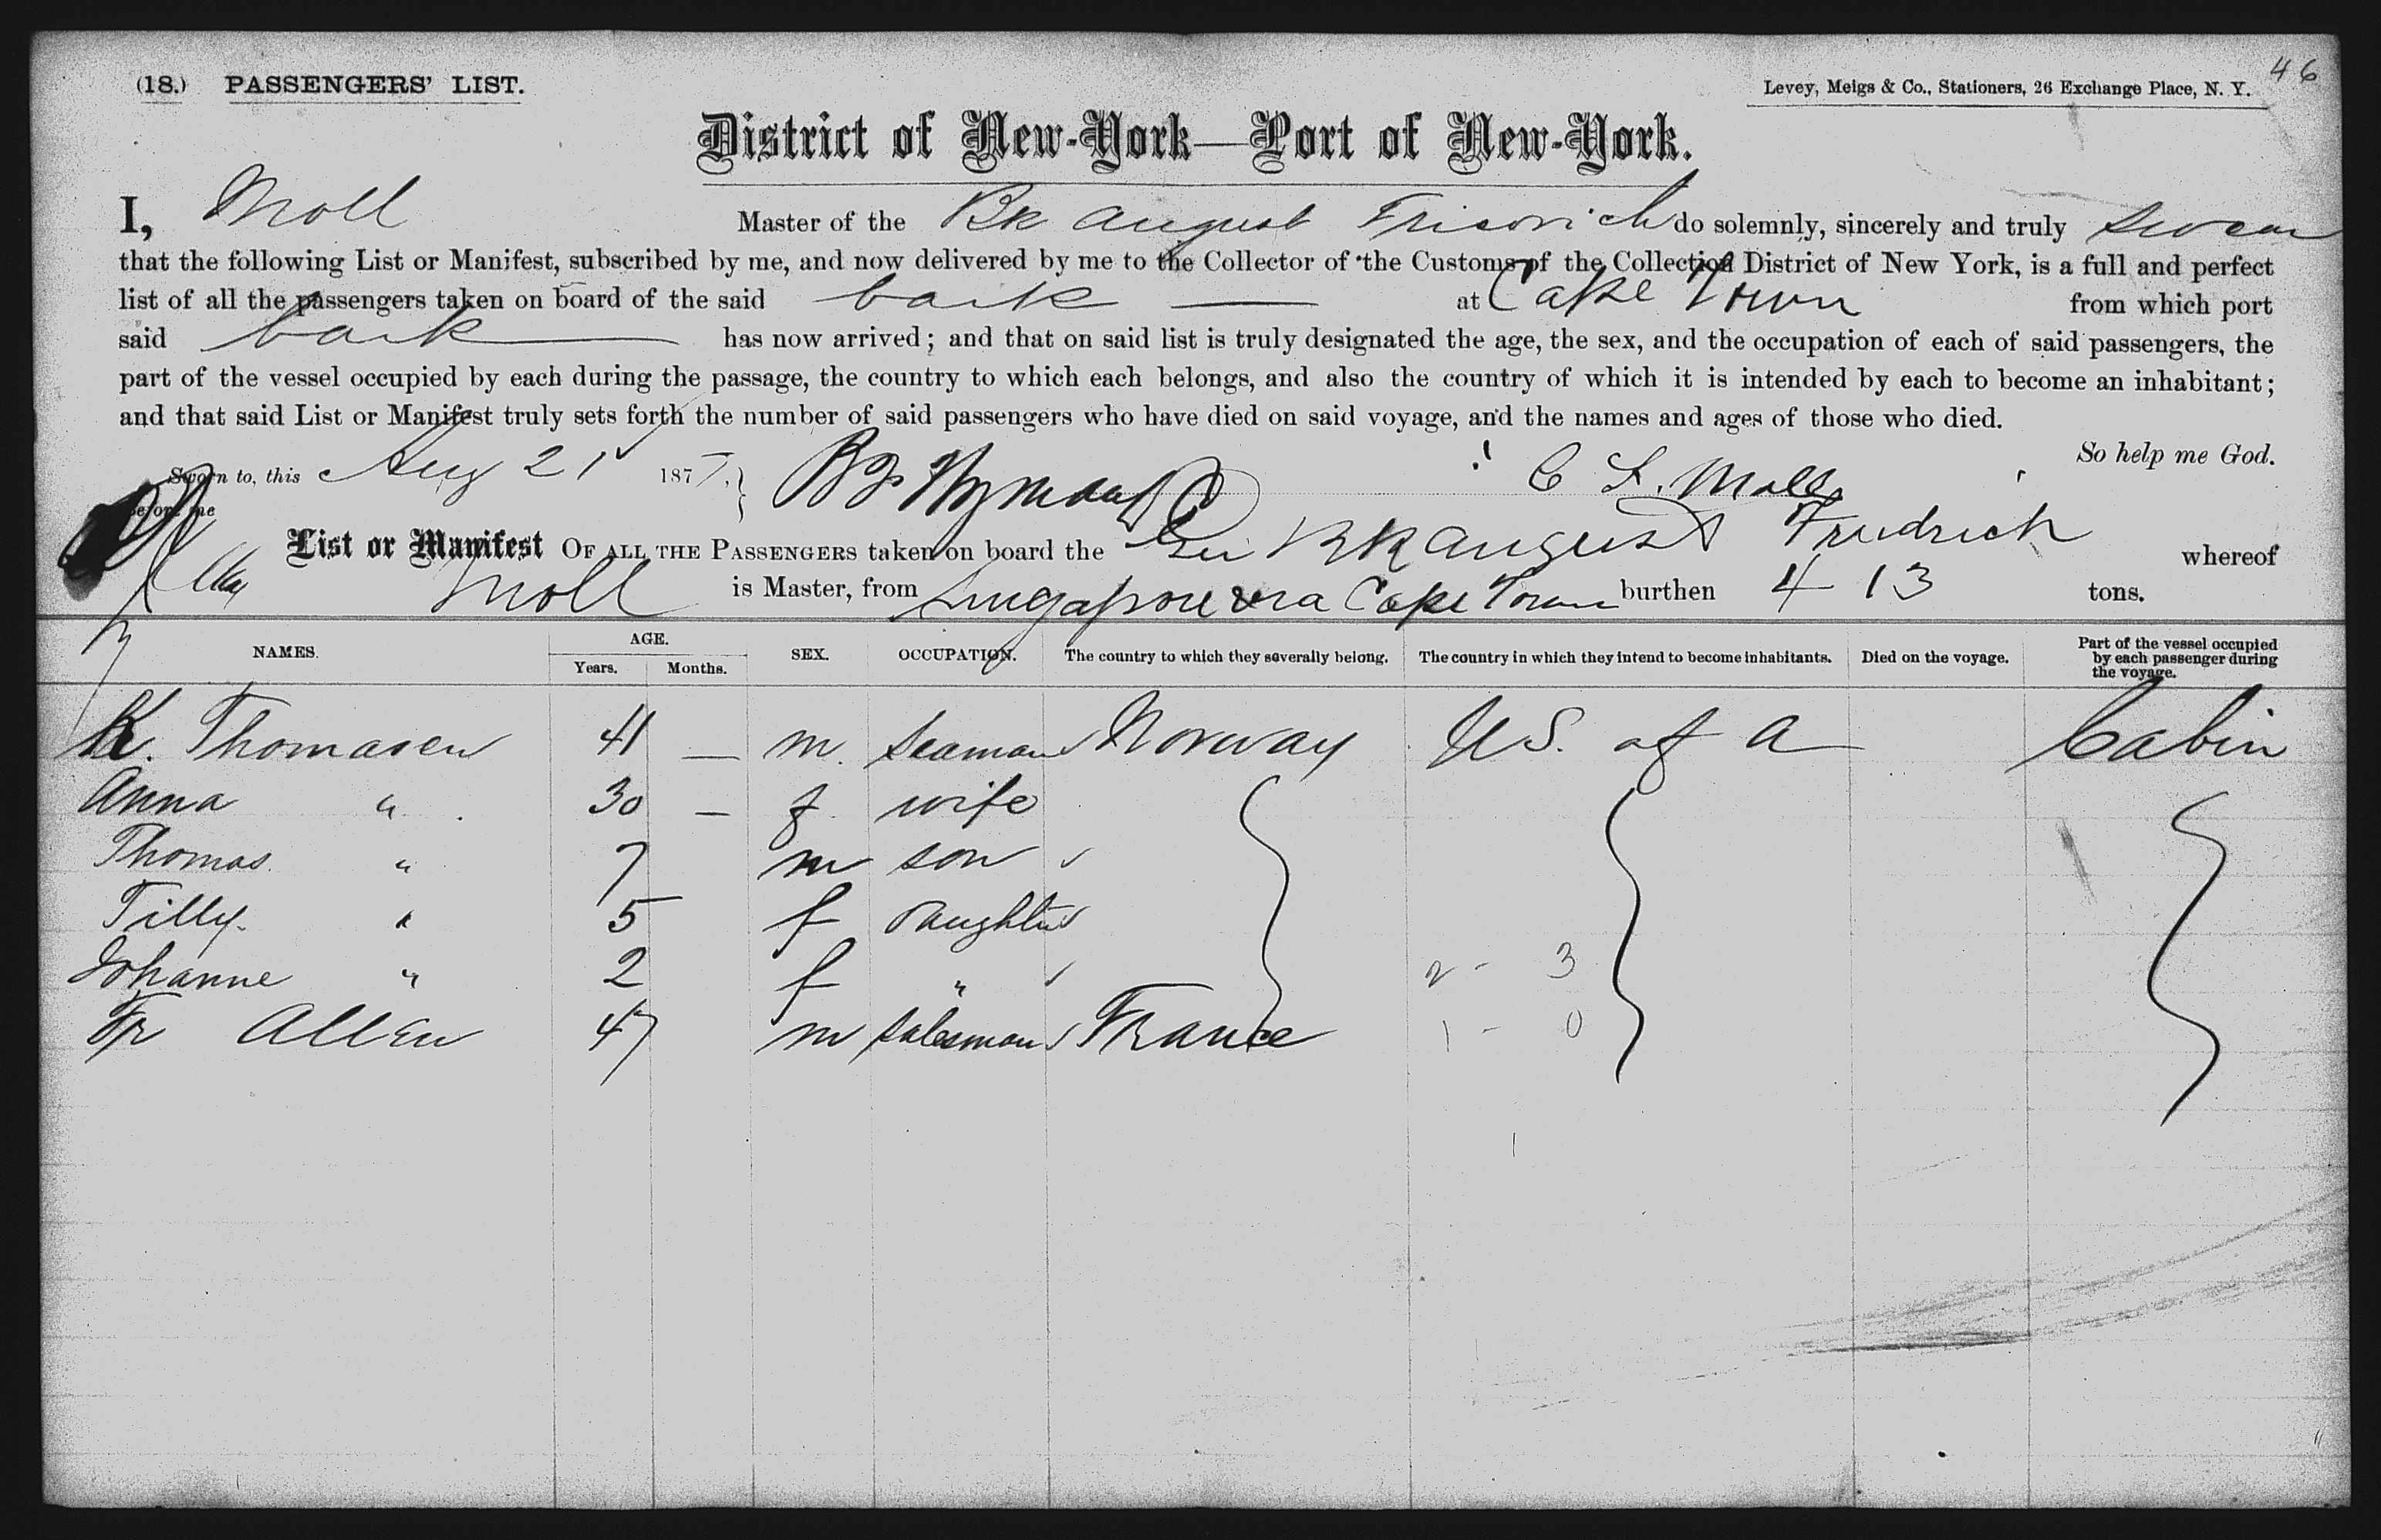 46
(18.) PASSENGERS' LIST. Levey, Meigs & Co., Stationers, 26 Exchange Place, N. Y.
District of New-York—Port of New-York.
I, Moll Master of the Bk August Friedrich do solemnly, sincerely and truly swear
that the following List or Manifest, subscribed by me, and now delivered by me to the Collector of the Customs of the Collection District of New York, is a full and perfect
list of all the passengers taken on board of the said bark — at Cape Town from which port
said bark has now arrived; and that on said list is truly designated the age, the sex, and the occupation of each of said passengers, the
part of the vessel occupied by each during the passage, the country to which each belongs, and also the country of which it is intended by each to become an inhabitant;
and that said List or Manifest truly sets forth the number of said passengers who have died on said voyage, and the names and ages of those who died.
So help me God.
Sworn to, this Aug 21 1877. C F. Moll
before me
List or Manifest OF ALL THE PASSENGERS taken on board the Ger Bk August Friedrich whereof
Moll is Master, from Singapore via Cape Town burthen 413 tons.
NAMES. AGE. Years. Months. SEX. OCCUPATION. The country to which they severally belong. The country in which they intend to become inhabitants. Died on the voyage. Part of the vessel occupied by each passenger during the voyage.
K. Thomasen 41 — m. Seaman Norway U S. of A Cabin
Anna " 30 — f. wife
Thomas. " 7 m son
Tilly. " 5 f Daughter
Johanne " 2 f " 2 - 3
Fr Allen 47 m Salesman France 1 - 0